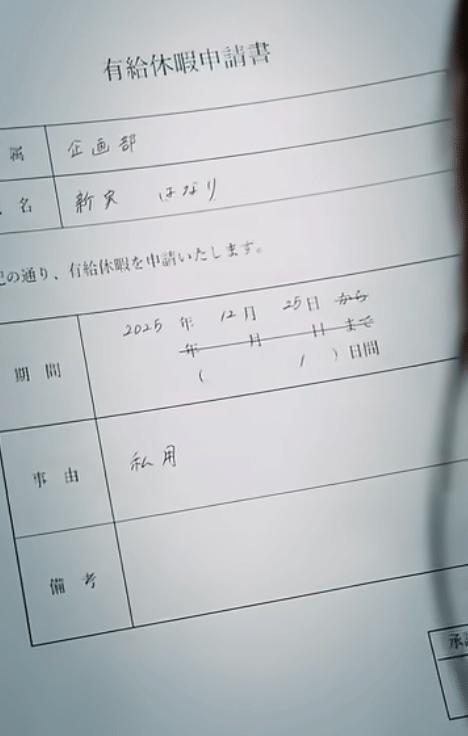 有給休暇申請書
属 企画部
名 新実 はなり
記の通り、有給休暇を申請いたします。
期間 2025 年 12月 25日 から
年 月 日 まで
( 1 ) 日間
事由 私用
備考
承認